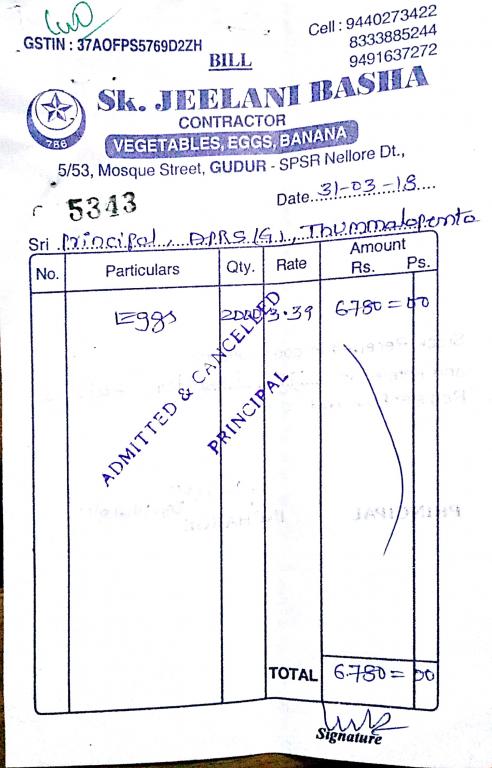 GSTIN : 37AOFPS5769D2ZH
Cell : 9440273422
8333885244
9491637272
BILL
Sk. JEELANI BASHA
CONTRACTOR
VEGETABLES, EGGS, BANANA
786
5/53, Mosque Street, GUDUR - SPSR Nellore Dt.,
5343
Date 31-03-18
Sri Principal, APRS (G), Thummalapenta
No. Particulars Qty. Rate Amount Rs. Ps.
Eggs 2000 3.39 6780=00
ADMITTED & CANCELLED
PRINCIPAL
TOTAL 6780=00
Signature